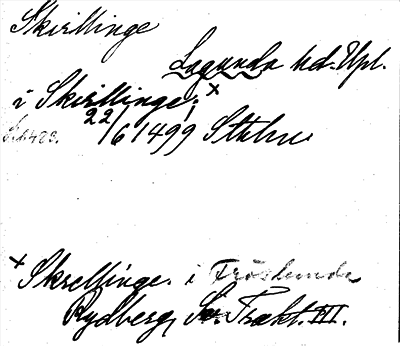 Skirllinge
Lagunda hd. Upl.
i Skirllinge; x
22/6 1499 Sthlm
x Skrellinge i Fröslunda
Rydberg, Sv. Trakt. III.